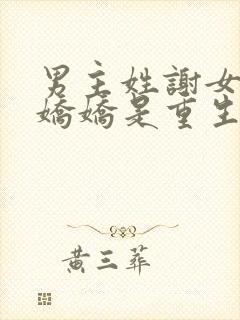 男主姓謝女
嬌嬌是重生
黃三葬